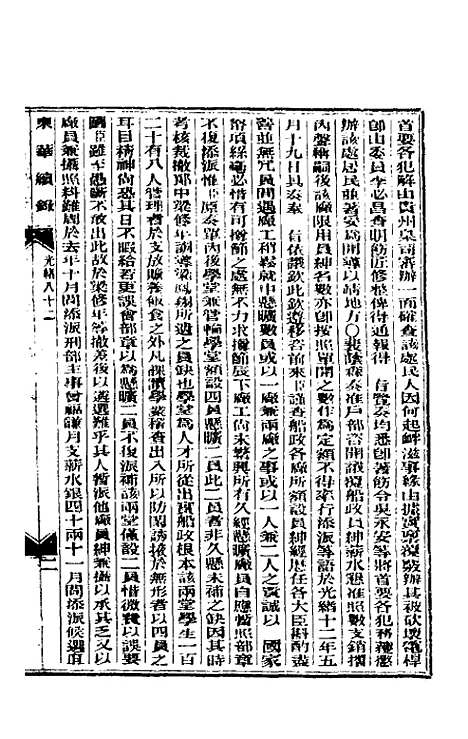 首要各犯解由貴州臬司審辦一面確查該處民人因何起衅滋事緣由據實稟覆嚴辦其被砍壞電桿
卽由委員李必昌查明飭匠修整俾得通報得 旨覽奏均悉卽著飭令吳永安等將首要各犯務獲懲
辦該處居民並著妥爲開導以靖地方〇裴蔭森奏准戶部咨開議覆船政員紳薪水懇准照數支銷摺
內聲稱嗣後該廠限用員紳名數亦卽按照單開之數作為定額不得率行添派等語於光緒十二年五
月十九日具奏奉 旨依議欽此欽遵移咨前來臣謹查船政各廠所額設員紳經歷任各大臣斟酌盡
善並無冗員間遇廠工稍鬆就中懸曠數員或以一人兼兩廠之事或以一人兼二人之責誠以 國家
帑項絲毫必惜有可撙節之處無不力求撙節辰下廠工尚未繁興所有久經懸曠廠員自應暫照部章
不復添派惟 原奏單內後學堂兼管輪學堂額設四員懸曠二員此二員者非久懸未補之缺因其時
考核裁撤郎中梁修年 梁鳴翔所遺之員缺也學堂爲人才所從出實船政根本該兩堂學生一百
二十有八人管理者於支放贍養飯食之外凡課讀學業稽查出入所以防閑誘掖於無形者以四員之
耳目精神尚恐其日不暇給若更誤會部章以爲懸曠二員不復派補該兩堂僅設二員惜微費以誤要
圖臣雖至愚斷不敢出此故於梁修年等撤差後以遴選難乎其人暫派他廠員紳兼攝以承其乏又以
廠員兼攝照料難周於去年十月間添派刑部主事曾福謙月支薪水銀四十兩十一月間添派候選直
東華續錄 光緒八十二 二